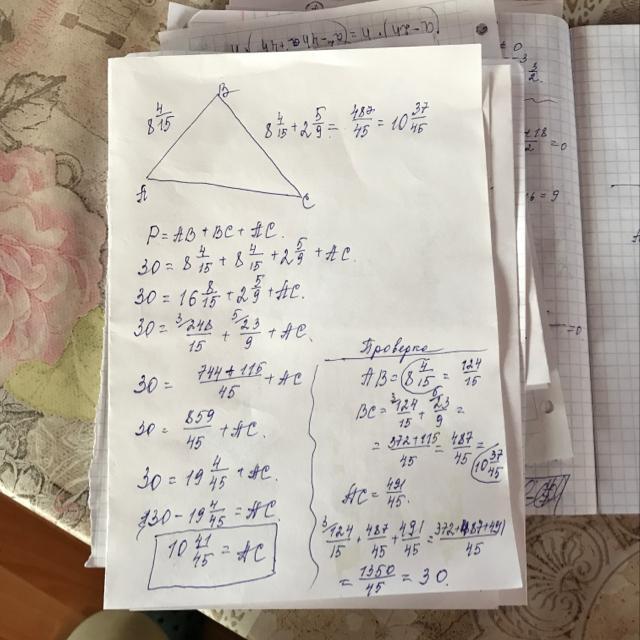 (a-2h)·h = (a²-4ha+4h
B
8 4/15
8 4/15 + 2 5/9 = 487/45 = 10 37/45
A
C
P = AB + BC + AC.
30 = 8 4/15 + 8 4/15 + 2 5/9 + AC.
30 = 16 8/15 + 2 5/9 + AC.
30 = ³⁄248/15 + ⁵⁄23/9 + AC.
30 = 744+115/45 + AC
30 = 859/45 + AC.
30 = 19 4/45 + AC.
30 - 19 4/45 = AC.
10 41/45 = AC
Проверка
AB = 8 4/15 = 124/15
BC = ³⁄124/15 + ⁵⁄23/9 =
= 372+115/45 = 487/45 = 10 37/45
AC = 491/45.
³⁄124/15 + 487/45 + 491/45 = 372+487+491/45
= 1350/45 = 30.